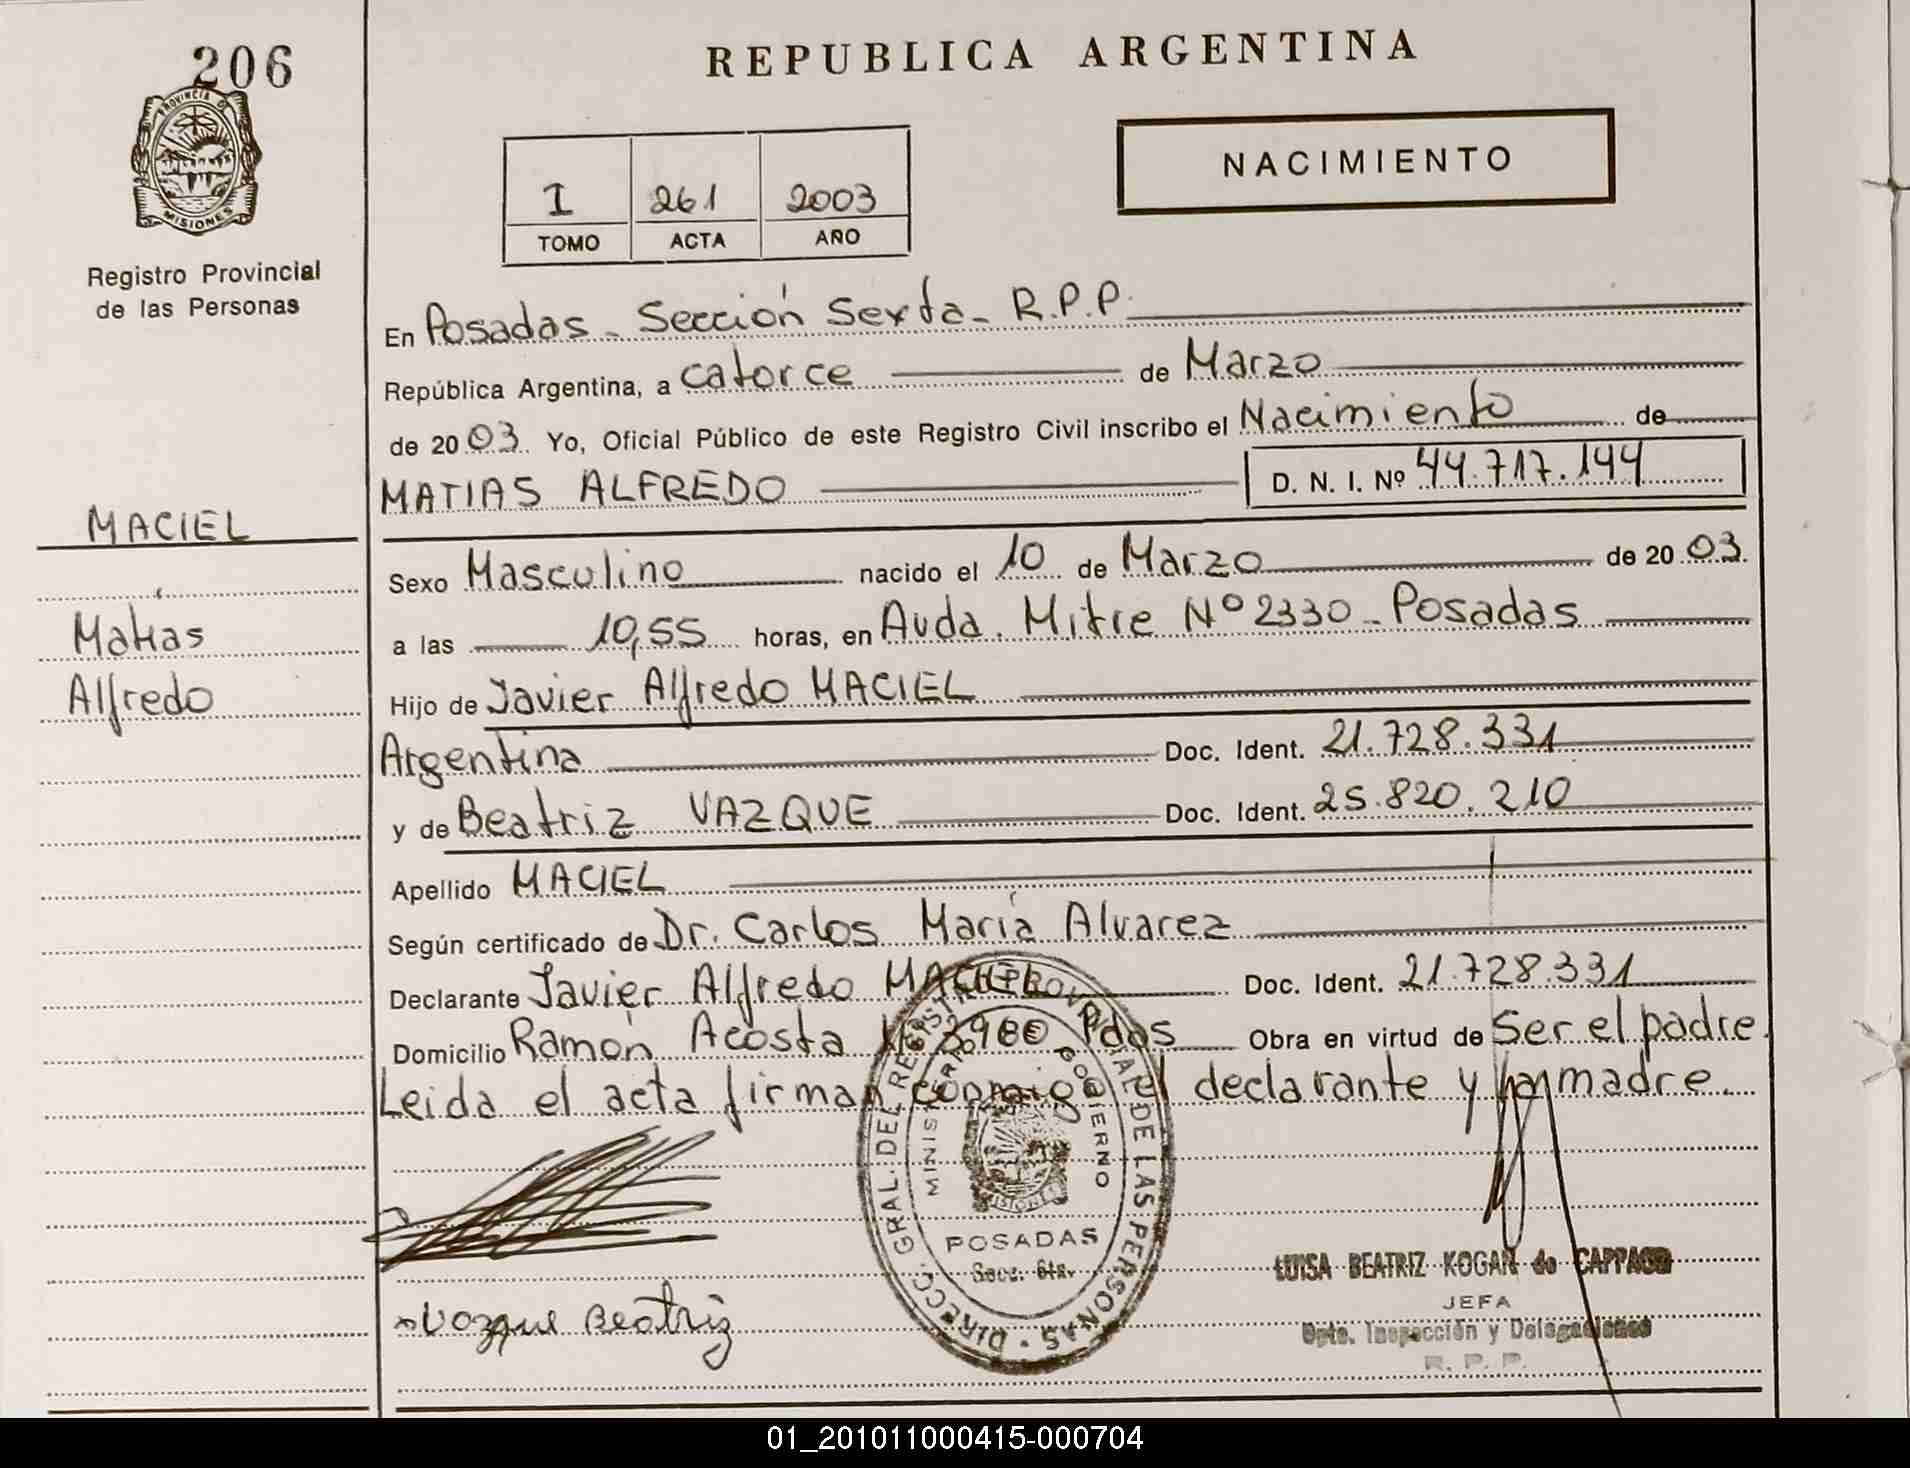 206
REPUBLICA ARGENTINA
PROVINCIA DE
MISIONES
Registro Provincial
de las Personas
I 261 2003
TOMO ACTA AÑO
NACIMIENTO
En Posadas - Sección Sexta - R.P.P.
República Argentina, a catorce de Marzo
de 2003 Yo, Oficial Público de este Registro Civil inscribo el Nacimiento de
MATIAS ALFREDO D. N. I. Nº 44.717.144
MACIEL
Matías
Alfredo
Sexo Masculino nacido el 10 de Marzo de 2003.
a las 10,55 horas, en Avda. Mitre Nº 2330 - Posadas
Hijo de Javier Alfredo MACIEL
Argentina Doc. Ident. 21.728.331
y de Beatriz VAZQUE Doc. Ident. 25.820.210
Apellido MACIEL
Según certificado de Dr. Carlos María Alvarez
Declarante Javier Alfredo MACIEL Doc. Ident. 21.728.331
Domicilio Ramón Acosta Nº 3980 Pdas Obra en virtud de Ser el padre.
Leida el acta firman conmigo el declarante y la madre.
DIRECC. GRAL. DEL REGISTRO PROVINCIAL DE LAS PERSONAS
MINISTERIO DE GOBIERNO
MISIONES
POSADAS
Secc. 6ta.
Vazque Beatriz
LUISA BEATRIZ KOGAN de CAPPAGO
JEFA
Dpto. Inspección y Delegaciones
R. P. P.
01_201011000415-000704